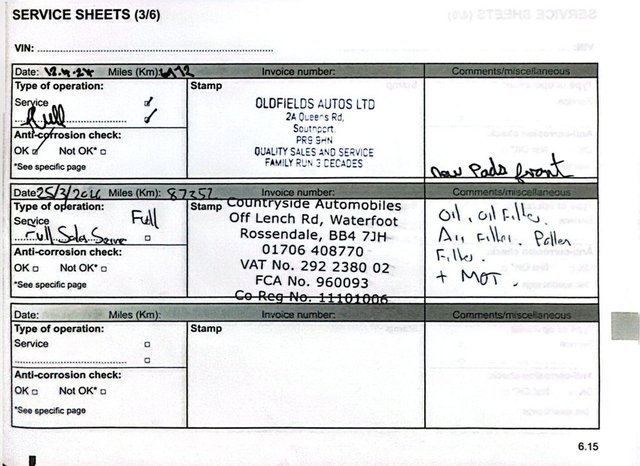 SERVICE SHEETS (3/6)
VIN:
Date: 12.4.24 Miles (Km): Invoice number: Comments/miscellaneous
Type of operation: Stamp
Service
Full
Anti-corrosion check:
OK Not OK*
*See specific page
OLDFIELDS AUTOS LTD
2A Queens Rd,
Southport.
PR9 9HN
QUALITY SALES AND SERVICE
FAMILY RUN 3 DECADES
new Pads front
Date: 25/3/2026 Miles (Km): 87252 Invoice number: Comments/miscellaneous
Type of operation: Stamp
Service Full
Full
Anti-corrosion check:
OK Not OK*
*See specific page
Countryside Automobiles
Off Lench Rd, Waterfoot
Rossendale, BB4 7JH
01706 408770
VAT No. 292 2380 02
FCA No. 960093
Co Reg No. 11101006
Oil, Oil Filter.
Air Filter. Pollen
Filter.
+ MOT.
Date: Miles (Km): Invoice number: Comments/miscellaneous
Type of operation: Stamp
Service
Anti-corrosion check:
OK Not OK*
*See specific page
6.15